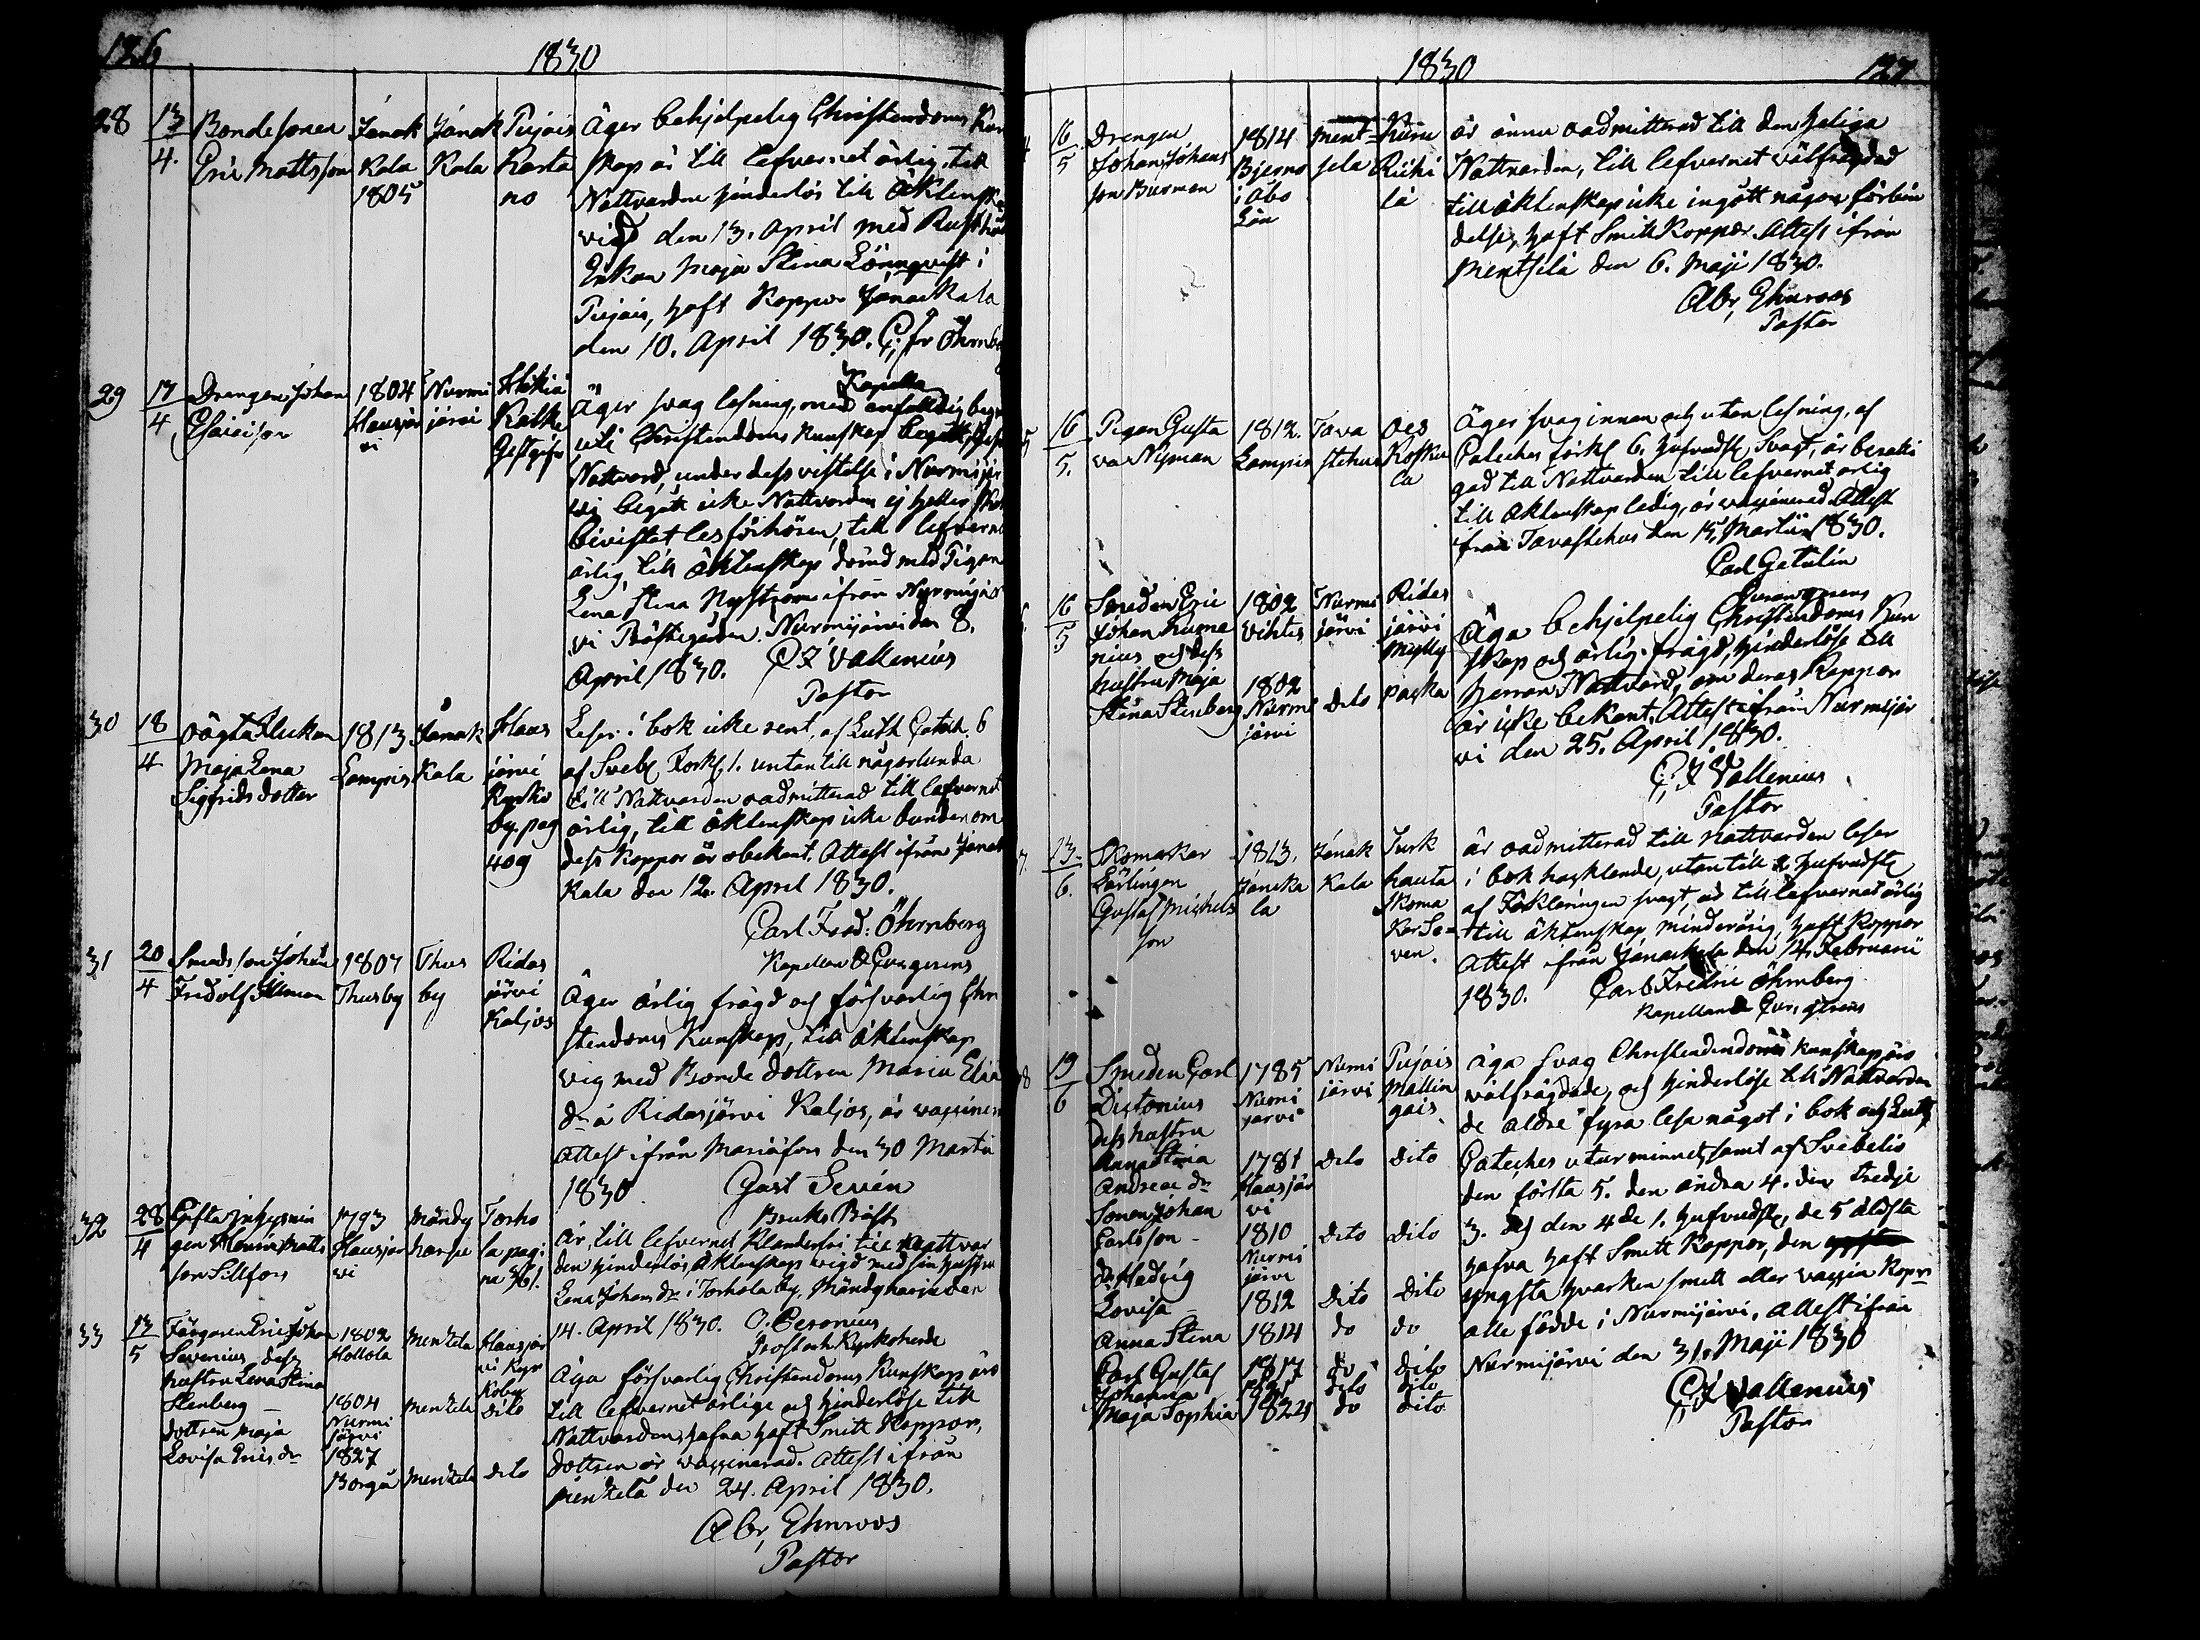 126
1830
28 13/4. Bondesonen Erik Mattsson
Janak Kala 1805
Janak Kala
Pujais Karta no
Äger behjelpelig Christendoms Kun
skap är till lefvernet ärlig, till
Nattvarden hinderlös till Äktenska
vigd den 13. April med Rusthål
Enkan Maja Stina Lönnqvist i
Pujais, haft Koppor Janackala
den 10. April 1830. C. Fr Öhrnbe
29 17/4 Drengen Johan Esaieison
1804 Hausjär vi
Nurmi järvi
Hikiä Kalke Gestgifv
Kapella
Äger svag lesning, med enfaldig begr
Christendoms Kunskap begått
Nattvard, under dess vistelse i Nurmijär
vi begått icke Nattvarden ej heller
bivistat lesförhören, till lefverne
ärlig, till äktenskap dömd med Pigan
Lena Stina Nyström ifrån Nurmijär
vi Prästegården. Nurmijärvi den 8.
April 1830. C F Vallenius
Pastor
30 18/4 Maja Lena Sigfrids dotter
1813 Lampis
Janak Kala
Haus järvi Ryske by. pag 409
Leser i bok icke rent, af Luth Catech. 6
af Sveb. Förkl. 1. untantill någorlunda
till Nattvarden oadmitterad till lefvernet
ärlig, till äktenskap icke bunden om
dess Koppor är obekant. Attest ifrån Janak
kala den 12. April 1830.
Carl Fred: Öhrnberg
Kapellan & Cur. gerens
31 20/4 Smeds son Johan Fridolf Illman
1807 Thusby
Thus by
Ridas järvi Kaljos
Äger ärlig frägd och försvarlig Chri
stendoms Kunskap, till äktenskap
vig med Bonde dottren Maria Elia
dr å Ridasjärvi Kaljos, är vaccinera
attest ifrån Mariäfors den 30 Martii
1830 Gust Sevén
Bruks Präst
32 28/4 Gifta Inhysnin gen Henric Matts son Sillfors
1793 Hausjär vi
Mändy harju
Torho la pagi na 361.
Är, till lefvernet Klanderfri till nattvar
den hinderlös, Äktenskap vigd med sin hustru
Lena Johans dr i Torhola by, Mändyharju den
14. April 1830. O. Ceronius
Prost och Kyrkoherde
33 13/5 Färgaren Eric Johan Severius dess hustru Lena Stina Stenberg –
dottren Maja Lovisa Erics dr
1802 Hollola
1804 Nurmi järvi
1827 Borgå
Mentzela
Mentzela
Mentzela
Hausjär vi Kyr Koby
dito
dito
Äga försvarlig Christendoms Kunskap äro
till lefvernet ärlige och hinderlöse till
Nattvarden, hafva haft Smitt Koppor,
dottren är vaccinerad. Attest ifrån
Mentzelä den 24. April 1830.
Abr, Ehnroos
Pastor
1830
127
16/5 Drengen Johan Johans son Burman
1814 Bjerno i Åbo Län
Ment- sela
Kuru Riihi lä
är ännu oadmitterad till den heliga
Nattvarden, till lefvernet välfrägdad
till äktenskap icke ingått någon förbin
delse, haft Smitt Koppor. Attest ifrån
Mentselä den 6. Maji 1830.
Abr, Ehnroos
Pastor
16/5. Pigan Gusta va Nyman
1812. Lampis
Tava stehus
Oes Kosku la
Äger svag innan och utan lesning, af
Cateches förkl 6. hufvudst. Svagt, är beräti
gad till Nattvarden till lefvernet ärlig
till äktenskap ledig, är vaccinerad Attest
ifrån Tavastehus den 15. Martii 1830.
Carl Getulin
Cur. gerens
16/5 Smeden Eric Johan Numa nius och dess hustru Maja Stina Stenberg
1802 Vihtis
1802 Nurmi järvi
Nurmi järvi
dito
Ridas järvi Mylly packa
Äga behjelpelig Christendoms Kun
skap och ärlig frägd, hinderlöse till
Herrans Nattvard, om deras Koppor
är icke bekant. Attest ifrån Nurmijär
vi den 25. April 1830.
C. F. Vallenius
Pastor
13/6. Skomakar Lärlingen Gustaf Michels son
1813. Janacka la
Janak Kala
Turk hauta Skoma Kar Sa= ven.
är oadmitterad till Nattvarden leser
i bok hacklande, utantill 2. hufvudst.
af Förklaringen svagt, är till lefvernet ärlig
till äktenskap minderårig, haft Koppor
Attest ifrån Janackala den 14. Februarii
1830. Carl Fredric Öhrnberg
Kapellan & Cur. gerens
19/6 Smeden Carl Dictonius
dess hustru Anna Stina Andreæ dr
Sonen Johan Carlsson –
dr Hedvig Lovisa –
Anna Stina
Carl Gustaf
Johanna
Maja Sophia
1785 Nurmi järvi
1781 Hausjär vi
1810 Nurmi järvi
1812
1814
1817
1821
1824
Nurmi järvi
dito
dito
dito
do
do
dito
do
Pujais Mallin gais
dito
dito
dito
do
dito
dito
dito
Äga svag Christendendoms kunskap äro
välfrägdade, och hinderlöse till Nattvarden
de äldre fyra lesa något i bok och Luth
Cateches utur minnet, samt af Svebelio
den första 5. den andra 4. den tredje
3. och den 4de 1. hufvudst., de 5 äldsta
hafva haft Smitt Koppor, den
yngsta hvarken smitt eller vaccin Kopr
alle födde i Nurmijärvi, attest ifrån
Nurmijärvi den 31. Maji 1830
C. F. Vallenius
Pastor